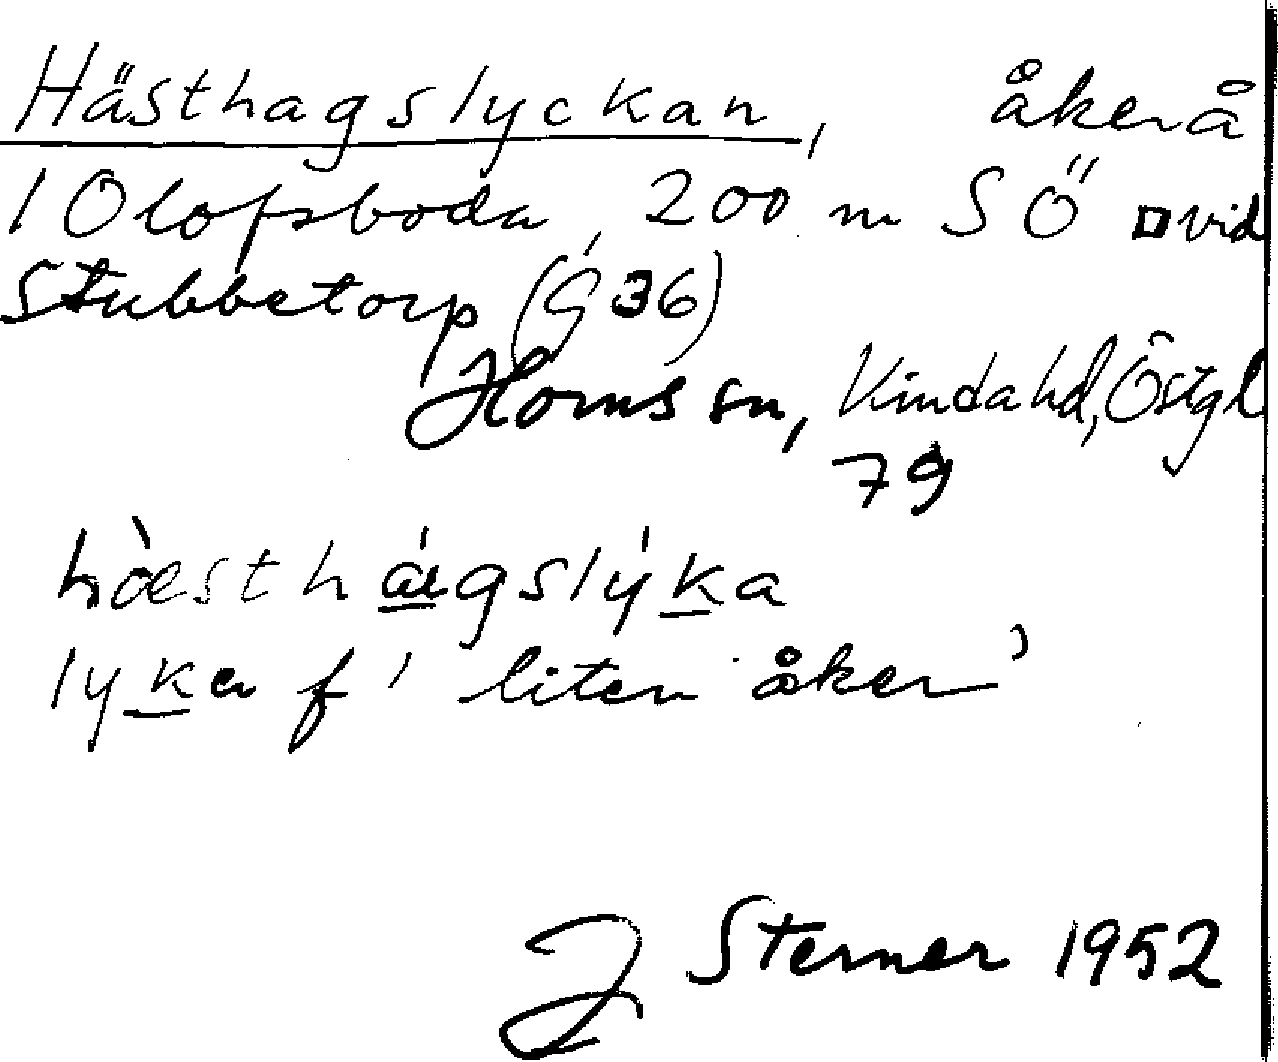 Hästhagslyckan, åker å
1 Olofsboda, 200 m SÖ □ vid
Stubbetorp (G 36)
Horns sn, Kinda hd, Östgl
79
hò̀esthágslýka
lyka f ' liten åker '
J Sterner 1952